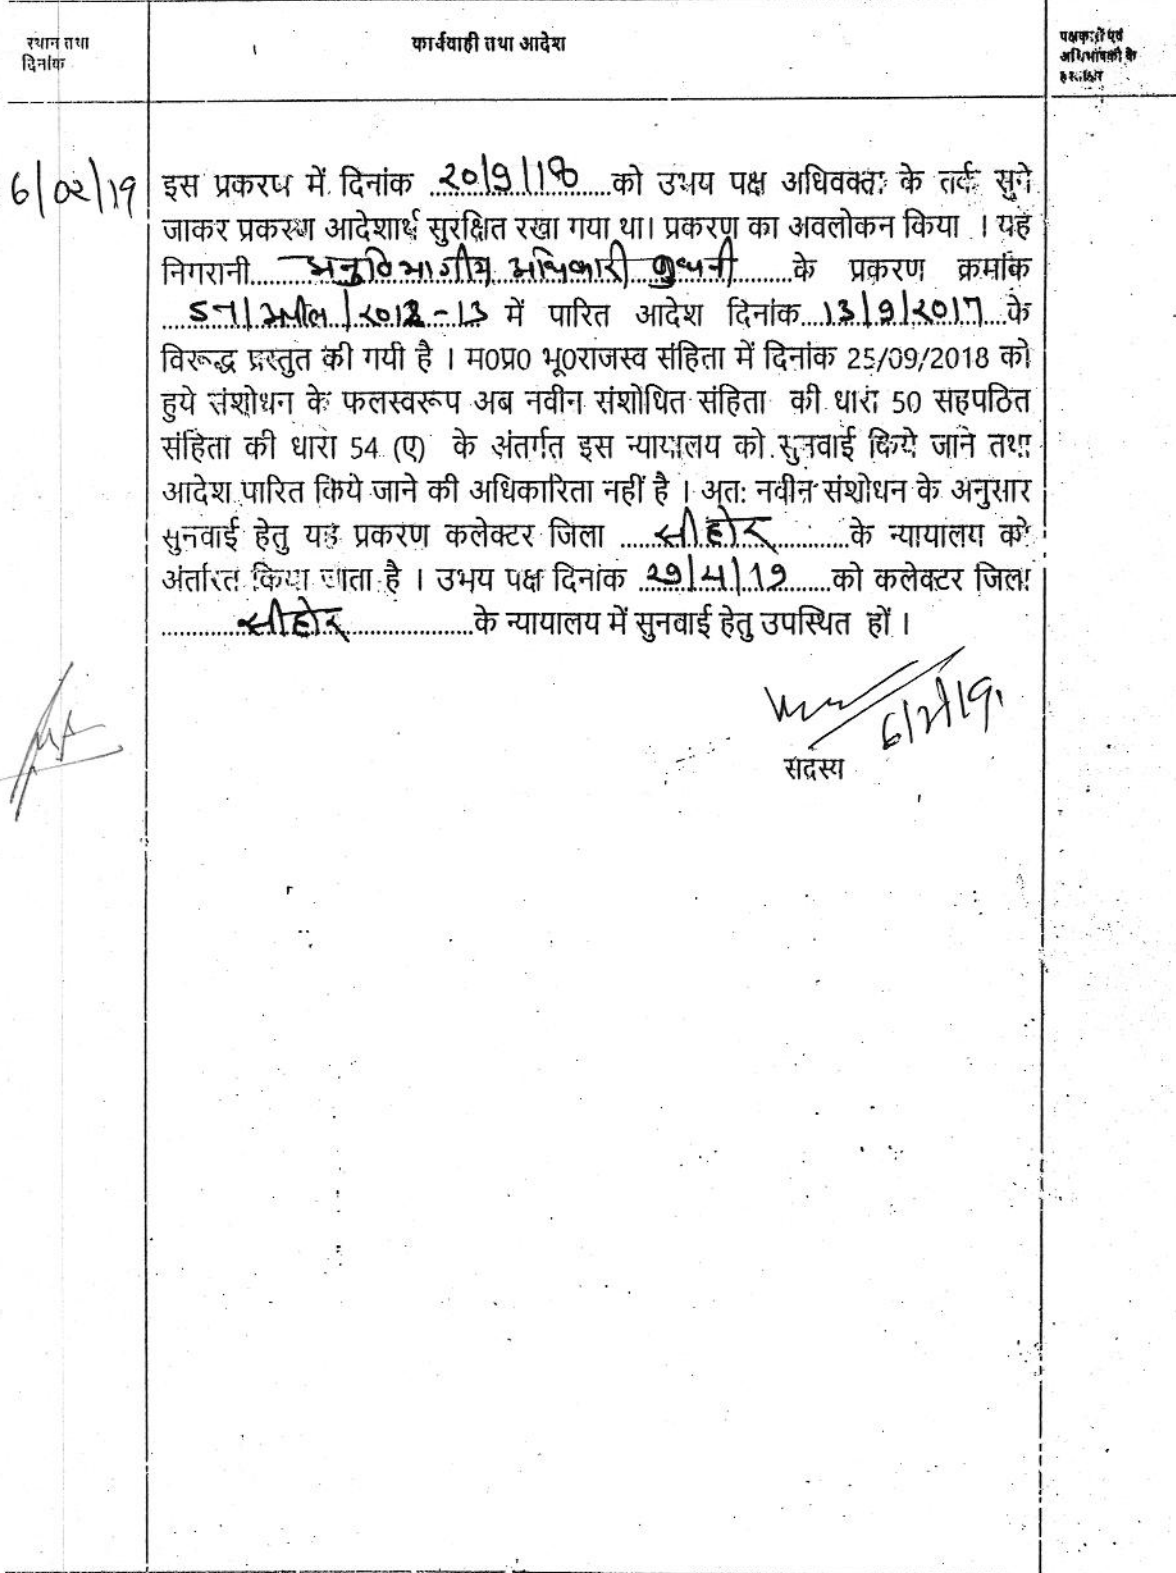 स्थान तथा
दिनांक
कार्यवाही तथा आदेश
पक्षकारों एवं
अभिभाषकों के
हस्ताक्षर
6/02/19
इस प्रकरण में दिनांक ....20/9/18....को उभय पक्ष अधिवक्ता के तर्क सुने
जाकर प्रकरण आदेशार्थ सुरक्षित रखा गया था। प्रकरण का अवलोकन किया । यह
निगरानी....अनुविभागीय अधिकारी बुधनी....के प्रकरण क्रमांक
/अपील/2012-13 में पारित आदेश दिनांक....13/9/2017....के
विरूद्ध प्रस्तुत की गयी है । म0प्र0 भू0राजस्व संहिता में दिनांक 25/09/2018 को
हुये संशोधन के फलस्वरूप अब नवीन संशोधित संहिता की धारा 50 सहपठित
संहिता की धारा 54 (ए) के अंतर्गत इस न्यायालय को सुनवाई किये जाने तथा
आदेश पारित किये जाने की अधिकारिता नहीं है । अतः नवीन संशोधन के अनुसार
सुनवाई हेतु यह प्रकरण कलेक्टर जिला ....सीहोर....के न्यायालय को
अंतरित किया जाता है । उभय पक्ष दिनांक 29/4/19....को कलेक्टर जिला
....सीहोर....के न्यायालय में सुनवाई हेतु उपस्थित हों ।
6/2/19
सदस्य